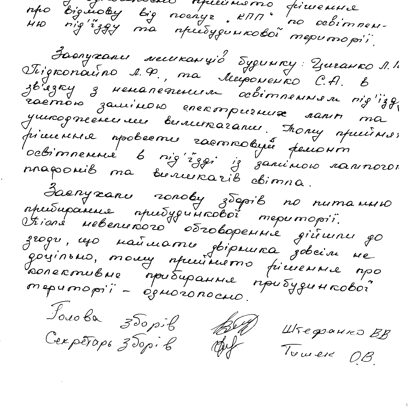 прийнято рішення
про відмову від послуг "КПП" по освітлен-
ню під'їзду та прибудинкової території.
Заслухали мешканців будинку: Циганко Л.І
Підкопайло Л.Ф., та Мироненко С.А. в
зв'язку з неналежним освітленням під'їзду
частою заміною електричних ламп та
ушкодженими вимикачами. Тому прийнято
рішення провести частковий ремонт
освітлення в під'їзді із заміною лампочок
плафонів та вимикачів світла.
Заслухали голову зборів по питанню
прибирання прибудинкової території.
Після невеликого обговорення дійшли до
згоди, що наймати двірника зовсім не
доцільно, тому прийнято рішення про
колективне прибирання прибудинкової
території - одноголосно.
Голова зборів Штефанко В.В
Секретарь зборів Тишек О.В.